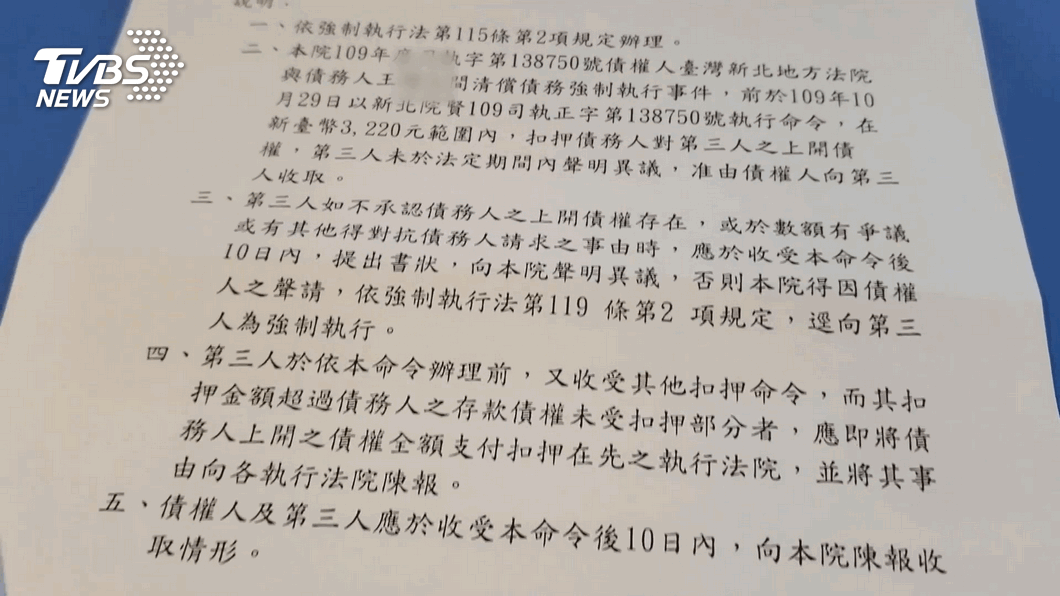 TVBS
NEWS
說明：
一、依強制執行法第115條第2項規定辦理。
二、本院109年度司執字第138750號債權人臺灣新北地方法院
與債務人王 間清償債務強制執行事件，前於109年10
月29日以新北院賢109司執正字第138750號執行命令，在
新臺幣3,220元範圍內，扣押債務人對第三人之上開債
權，第三人未於法定期間內聲明異議，准由債權人向第三
人收取。
三、第三人如不承認債務人之上開債權存在，或於數額有爭議
或有其他得對抗債務人請求之事由時，應於收受本命令後
10日內，提出書狀，向本院聲明異議，否則本院得因債權
人之聲請，依強制執行法第119 條第2 項規定，逕向第三
人為強制執行。
四、第三人於依本命令辦理前，又收受其他扣押命令，而其扣
押金額超過債務人之存款債權未受扣押部分者，應即將債
務人上開之債權全額支付扣押在先之執行法院，並將其事
由向各執行法院陳報。
五、債權人及第三人應於收受本命令後10日內，向本院陳報收
取情形。